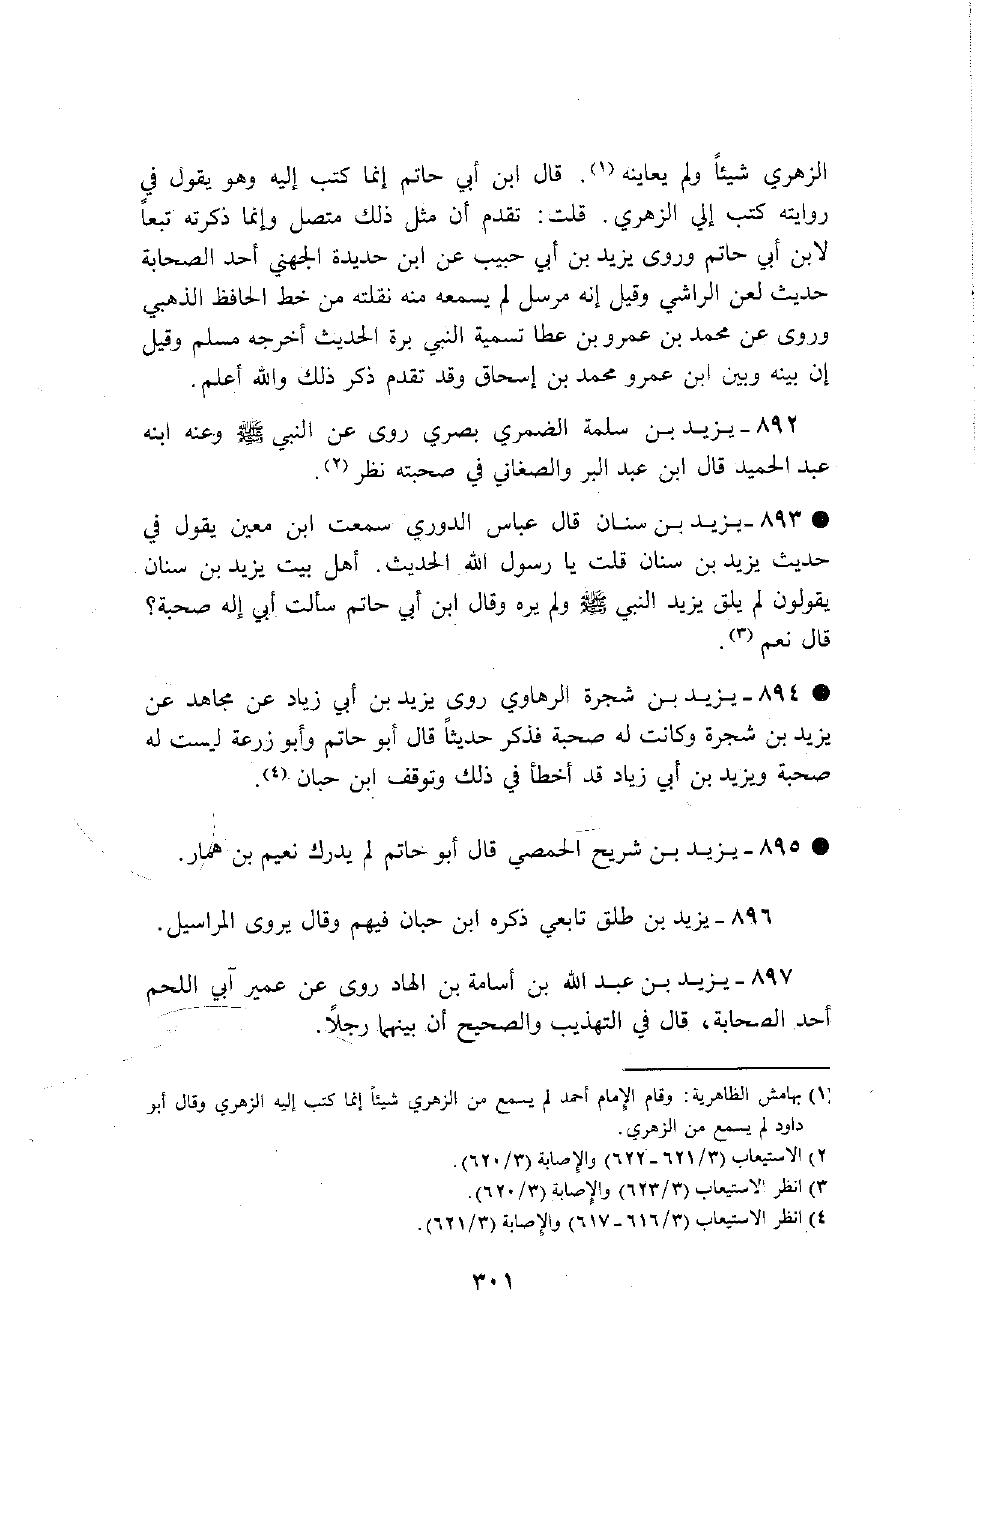 الزهري شيئاً ولم يعاينه (١). قال ابن أبي حاتم إنما كتب إليه وهو يقول في
روايته كتب إلي الزهري. قلت: تقدم أن مثل ذلك متصل وإنما ذكرته تبعاً
لابن أبي حاتم وروى يزيد بن أبي حبيب عن ابن حديدة الجهني أحد الصحابة
حديث لعن الراشي وقيل إنه مرسل لم يسمعه منه نقلته من خط الحافظ الذهبي
وروى عن محمد بن عمرو بن عطا تسمية النبي برة الحديث أخرجه مسلم وقيل
إن بينه وبين ابن عمرو محمد بن إسحاق وقد تقدم ذكر ذلك والله أعلم.
٨٩٢ ـ يـزيـد بـن سلمة الضمري بصري روى عن النبي ﷺ وعنه ابنه
عبد الحميد قال ابن عبد البر والصغاني في صحبته نظر (٢).
● ٨٩٣ ـ يـزيـد بـن سنـان قال عباس الدوري سمعت ابن معين يقول في
حديث يزيد بن سنان قلت يا رسول الله الحديث. أهل بيت يزيد بن سنان
يقولون لم يلق يزيد النبي ﷺ ولم يره وقال ابن أبي حاتم سألت أبي إله صحبة؟
قال نعم (٣).
● ٨٩٤ ـ يـزيـد بـن شجرة الرهاوي روى يزيد بن أبي زياد عن مجاهد عن
يزيد بن شجرة وكانت له صحبة فذكر حديثاً قال أبو حاتم وأبو زرعة ليست له
صحبة ويزيد بن أبي زياد قد أخطأ في ذلك وتوقف ابن حبان (٤).
● ٨٩٥ ـ يـزيـد بـن شريح الحمصي قال أبو حاتم لم يدرك نعيم بن همار.
٨٩٦ ـ يزيد بن طلق تابعي ذكره ابن حبان فيهم وقال يروى المراسيل.
٨٩٧ ـ يـزيـد بـن عبـد الله بن أسامة بن الهاد روى عن عمير آبي اللحم
أحد الصحابة، قال في التهذيب والصحيح أن بينهما رجلاً.
(١) بهامش الظاهرية: وقام الإمام أحمد لم يسمع من الزهري شيئاً إنما كتب إليه الزهري وقال أبو
داود لم يسمع من الزهري.
٢) الاستيعاب (٣/ ٦٢١ ـ ٦٢٢) والإصابة (٣/ ٦٢٠).
٣) انظر الاستيعاب (٣/ ٦٢٣) والإصابة (٣/ ٦٢٠).
٤) انظر الاستيعاب (٣/ ٦١٦ ـ ٦١٧) والإصابة (٣/ ٦٢١).
٣٠١